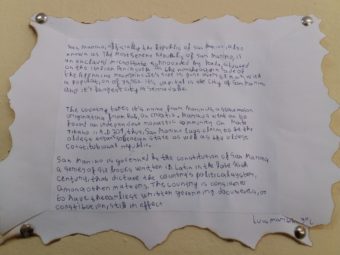 San Marino, officially the Republic of San Marino, also
known as The Most Serene Republic of San Marino, is
an enclaved microstate surrounded by Italy, situated
on the Italian Peninsula on the northeastern side of
the Apennine Mountains. Its size is just over 61 km² with
a population of 33,562. Its capital is the City of San Marino
and it's largest city is Serravalle.
The country takes it's name from Marinus, a stonemason
originating from Rab, in Croatia. Marinus went on to
found an independent monastic community on Monte
Titano in A.D 301, thus San Marino lays claim to be the
oldest sovereign state as well as the oldest
constitutional republic.
San Marino is governed by the constitution of San Marino,
a series of six books written in Latin in the late 16th
century, that dictate the country's political system,
among other matters. The country is considered
to have the earliest written governing documents, or
constitution, still in effect